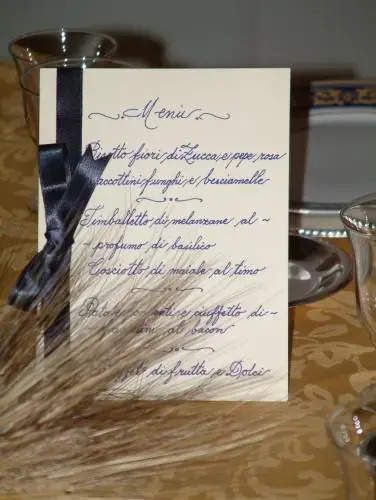 Menù
Risotto fiori di Zucca e pepe rosa
funghi e besciamelle
Timballetto di melanzane al ~
~ profumo di basilico
Cosciotto di maiale al timo
e ciuffetto di ~
al bacon
di frutta e Dolci